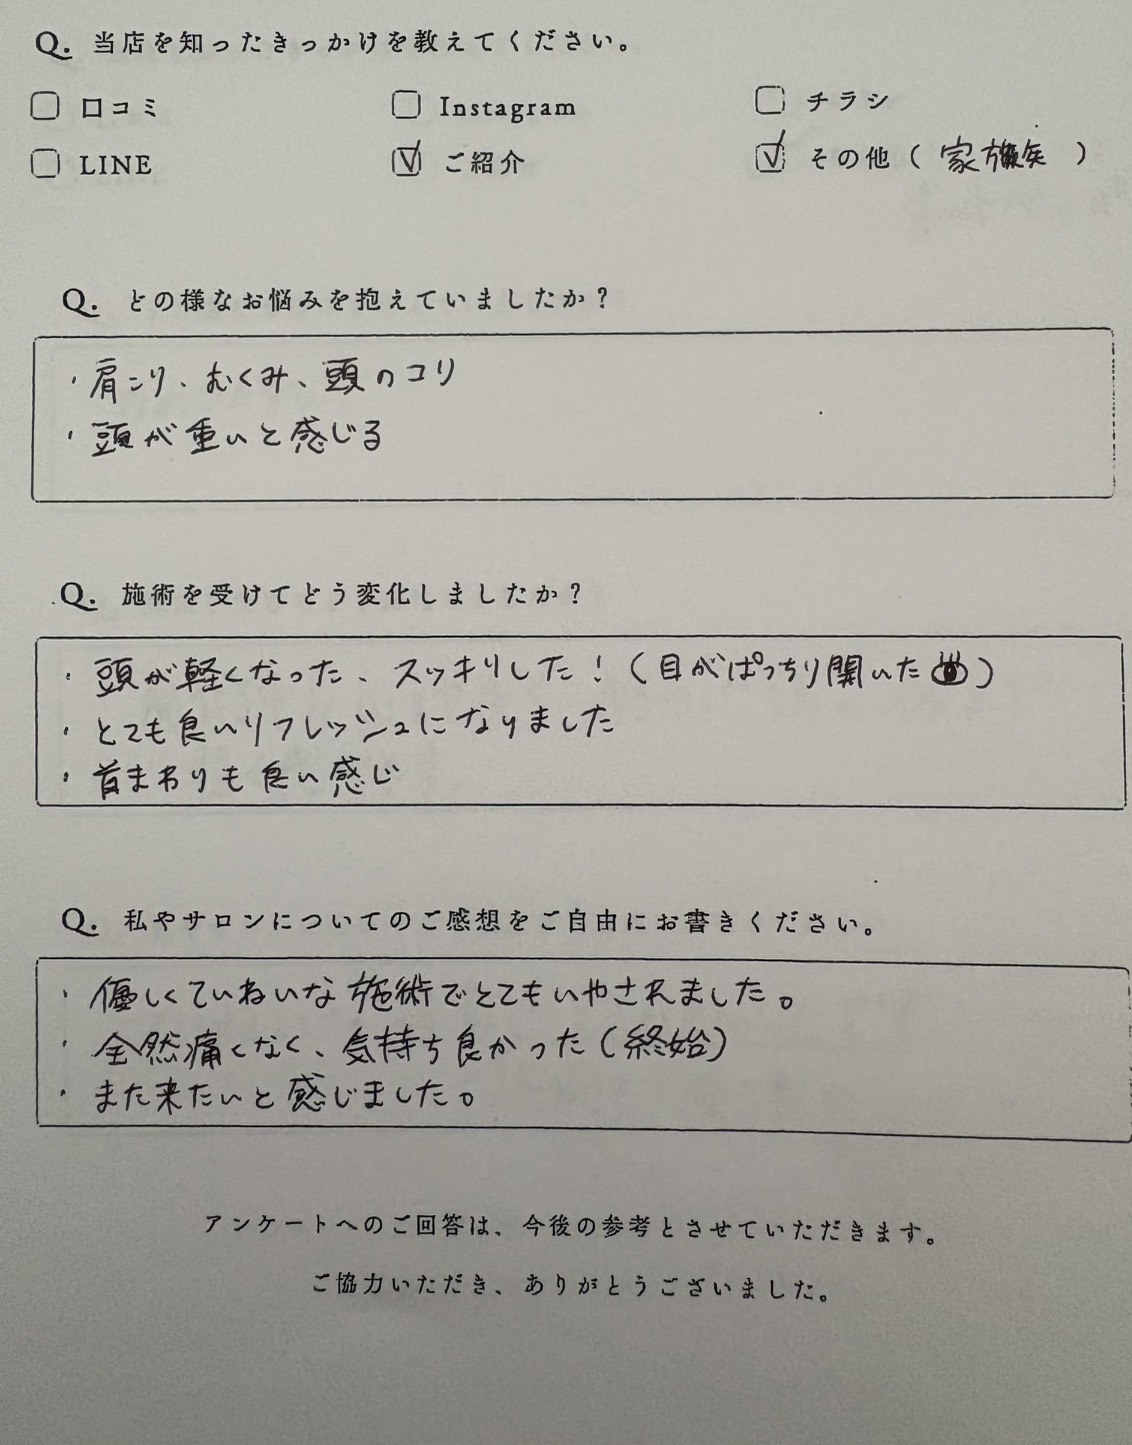 Q. 当店を知ったきっかけを教えてください。
□ 口コミ □ Instagram □ チラシ
□ LINE ☑ ご紹介 ☑ その他（ 家族 ）
Q. どの様なお悩みを抱えていましたか？
・肩こり、むくみ、頭のコリ
・頭が重いと感じる
Q. 施術を受けてどう変化しましたか？
・頭が軽くなった、スッキリした！（目がぱっちり開いた）
・とても良いリフレッシュになりました
・首まわりも良い感じ
Q. 私やサロンについてのご感想をご自由にお書きください。
・優しくていねいな施術でとてもいやされました。
・全然痛くなく、気持ち良かった（終始）
・また来たいと感じました。
アンケートへのご回答は、今後の参考とさせていただきます。
ご協力いただき、ありがとうございました。